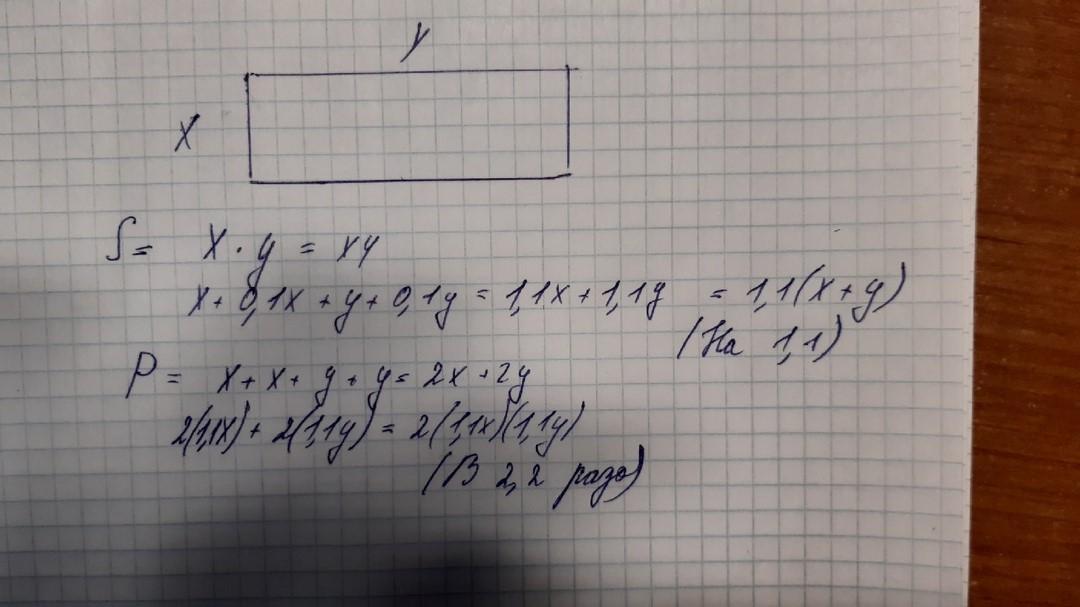 y
x
S = x · y = xy
x + 0,1x + y + 0,1y = 1,1x + 1,1y = 1,1(x + y)
(На 1,1)
P = x + x + y + y = 2x + 2y
2(1,1x) + 2(1,1y) = 2(1,1x)(1,1y)
(В 2,2 раза)